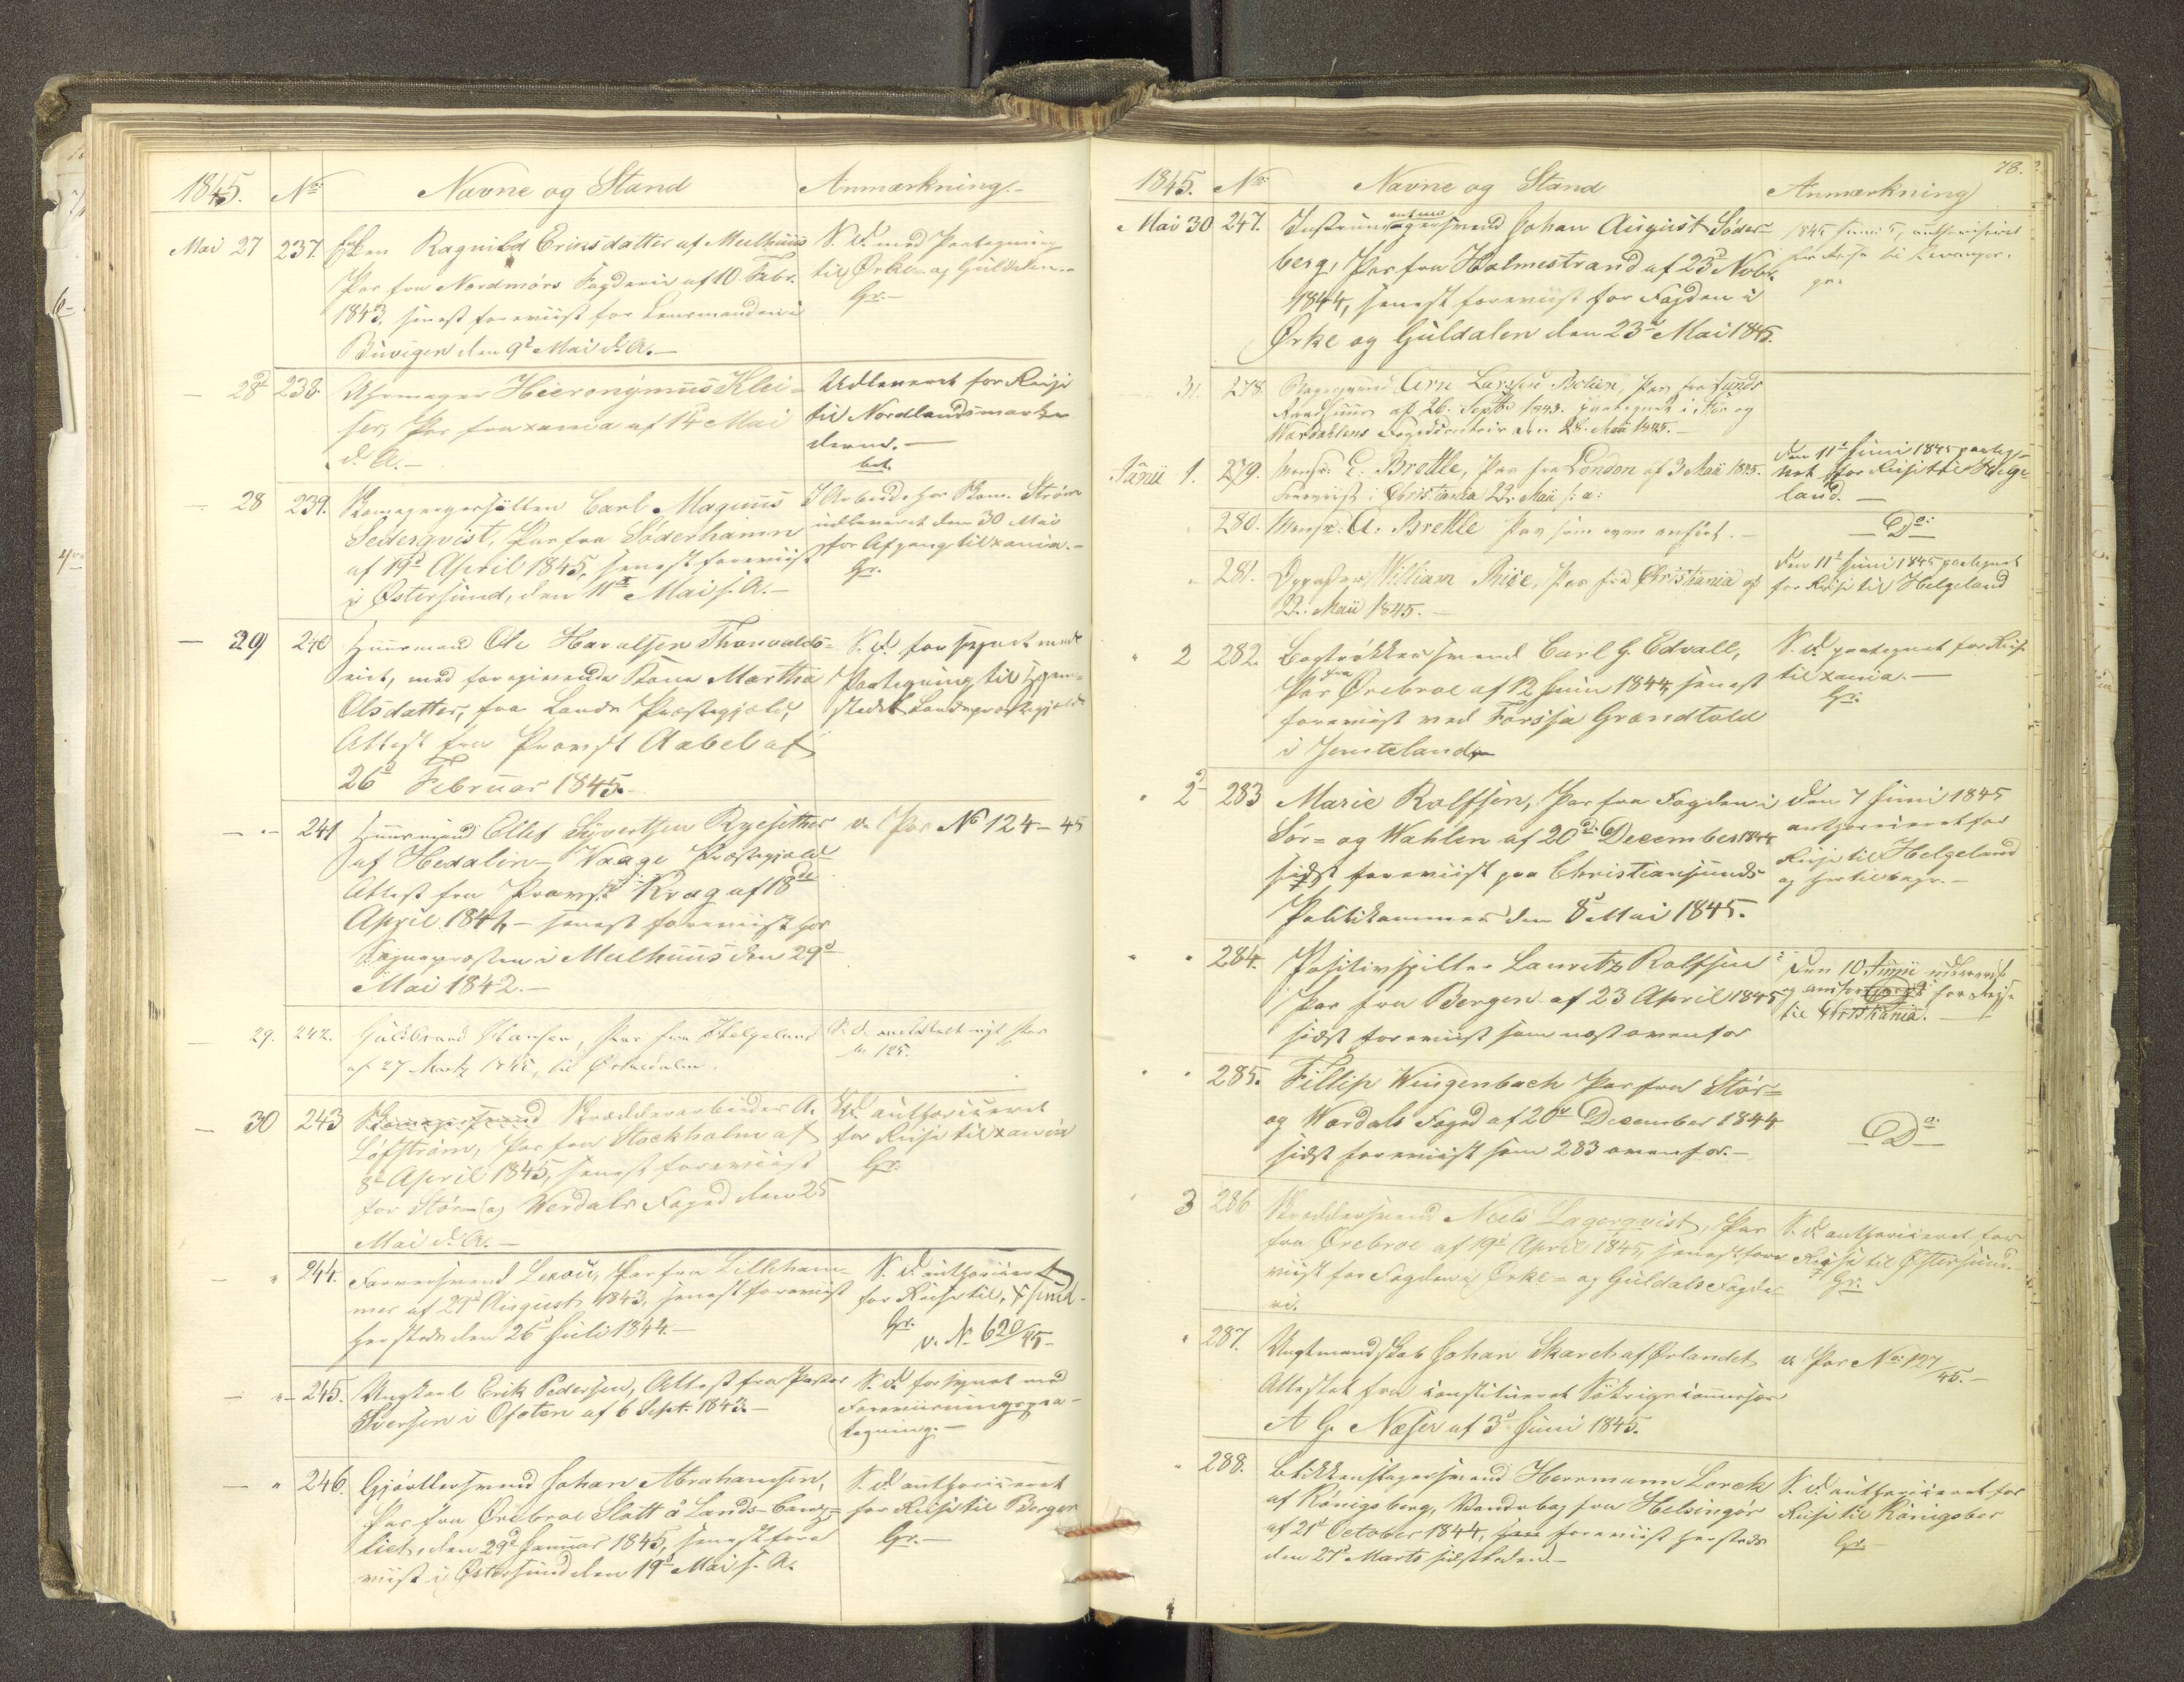 1845.
No
Navne og Stand
Anmærkning.-
Mai 27
237.
Ragnild Ericksdatter af Meelhuus
Pas fra Nordmørs Fogderie af 10 Febr.
1843, senest foreviist for Lensmanden i
Buvigen den 9d Mai d. A. —
S. d. med Paategning
til Ørke- og Guldalen.-
Gr. —
— 28d
238.
Uhrmager Hieronymus Klei=
ser, Pas fra xania af 14d Mai
d. A. —
Udleveret for Reise
til Nordlandsmarke
derne. —
bet.
— 28
239.
Carl Magnus
Sederqvist, Pas fra Söderhamn
af 19d April 1845, senest foreviist
i Østersund, den 11d Mai s. A. —
udleveret den 30 Mai
for Afgang til xania. —
Gr.
— 29
240
Huusmand Ole Haralsen Thorvalds=
eiet, med foregivende Kone Martha
Olsdatter, fra Lands Præstegjeld,
Attest fra Provst Aabel af
26d Februar 1845.
S. d. forsynet med
Paategning til Hjem=
stedet Lands præstegjeld
— " —
241
Huusmand Ellef Syvertsen Ryesether
af Hedalen - Vaage Præstegjeld
Attest fra Provst Krag af 18de
April 1841, - senest foreviist for
Sognepræsten i Meelhuus den 29d
Mai 1842. —
v. Pas No 124 - 45
— 29.
242.
Guldbrand Hansen, Pas fra Helgeland
af 27 Martz 1845, til Østerdalen.
S. d. meddeelt nyt Pas
No 125.
— 30
243
Skrædderarbeider A.
Löfström, Pas fra Stockholm af
8d April 1845, senest foreviist
for Stør- og Werdals Foged den 25
Mai d. A. —
S. d. authoriseret
for Reise til xania
Gr.
— "
244.
Farversvend Lexou, Pas fra Lilleham=
mer af 21d August 1843, senest foreviist
her steds den 26d Juli 1844. —
S. d. authoriseret
for Reise til
Gr.
v. No 620/45 -
— " —
245.
Ungkarl Erik Pedersen, Attest fra Pastor
Iversen i Ofoten af 6 Sept. 1843. —
S. d. forsynet med
Foreviisningspaa=
tegning. —
— "
246.
Gjørtlersvend Johan Abrahamsen,
Pas fra Örebroe Slott å Lands-Canz=
liet, den 29d Januar 1845, senest fore
viist i Østersund den 19d Mai s. A.
S. d. authoriseret
for Reise til Bergen
Gr. —
78.
1845.
No
Navne og Stand
Anmærkning
Mai 30
247.
Johan August Söder=
berg, Pas fra Holmestrand af 23d Novbr.
1844, senest foreviist for Fogden i
Ørke og Guldalen den 23d Mai 1845.
1845 Juni 5, authoriseret
for Reise til Levanger.
gr.
31.
278.
Bagersvend Arn Larssen Pas fra Lunds
Raadhuus af 26. Septbr 1843. paategnet i Stør og
Wærdahlens Fogedcontoir den 28. Mai 1845. —
Junii 1.
279.
Monsr: E. Brettle, Pas fra London af 3 Mai 1845.
Foreviist i Christiania 22. Mai s: a:
Den 11te Juni 1845 paateg-
net for Reise til Helge
land. —
"
280.
Monsr: A: Brettle Pas som oven anført. —
— Do: —
"
281.
Opvarter William Rise, Pas fra Christiania af
22. Mai 1845. —
Den 11te Juni 1845 paategnet
for Reise til Helgeland
" 2
282.
Carl G. Edvall,
Pas fra Örebroe af 12 Juni 1844, senest
foreviist ved Forssa Grændtold
i Jemteland
S. d. paategnet for Reise
til xania. —
Gr.
" 2d
283
Marie Rolfsen, Pas fra Fogden i
Sør- og Wahlen af 20de December 1844
sidst foreviist paa Christiansunds
Politikammer den 8d Mai 1845.
Den 7 Juni 1845
authoriseret for
Reise til Helgeland
og her tilbage. —
" "
284.
Positivspiller Lauritz Rolfsen
Pas fra Bergen af 23 April 1845
sidst foreviist som næst ovenfor
Den 10 Junii
for Reise
til Christiania. —
" "
285.
Fillip Wingenbach Pas fra Stör=
og Wærdals Foged af 20d December 1844
sidst foreviist som 283 ovenfor. —
— Do: —
" 3
286
Skræddersvend Neels Lagerqvist, Pas
fra Örebroe af 19d April 1845, senest fore
viist for Fogden i Ørke= og Guldals Fogde=
rie.
S. d. authoriseret for
Reise til Østersund.
Gr.
"
287.
Johan Skarch af Ørlandet
Attestat fra constitueret
A. G. Næser af 3d Juni 1845.
v Pas No: 127/45. —
"
288.
Blikkenslagersvend Herrmann Lorek
af Königsberg, Vandrebog fra Helsingør
af 21d October 1844, foreviist hersteds
den 27d Marts sidstleden. —
S. d. authoriseret for
Reise til Königsber
Gr. —